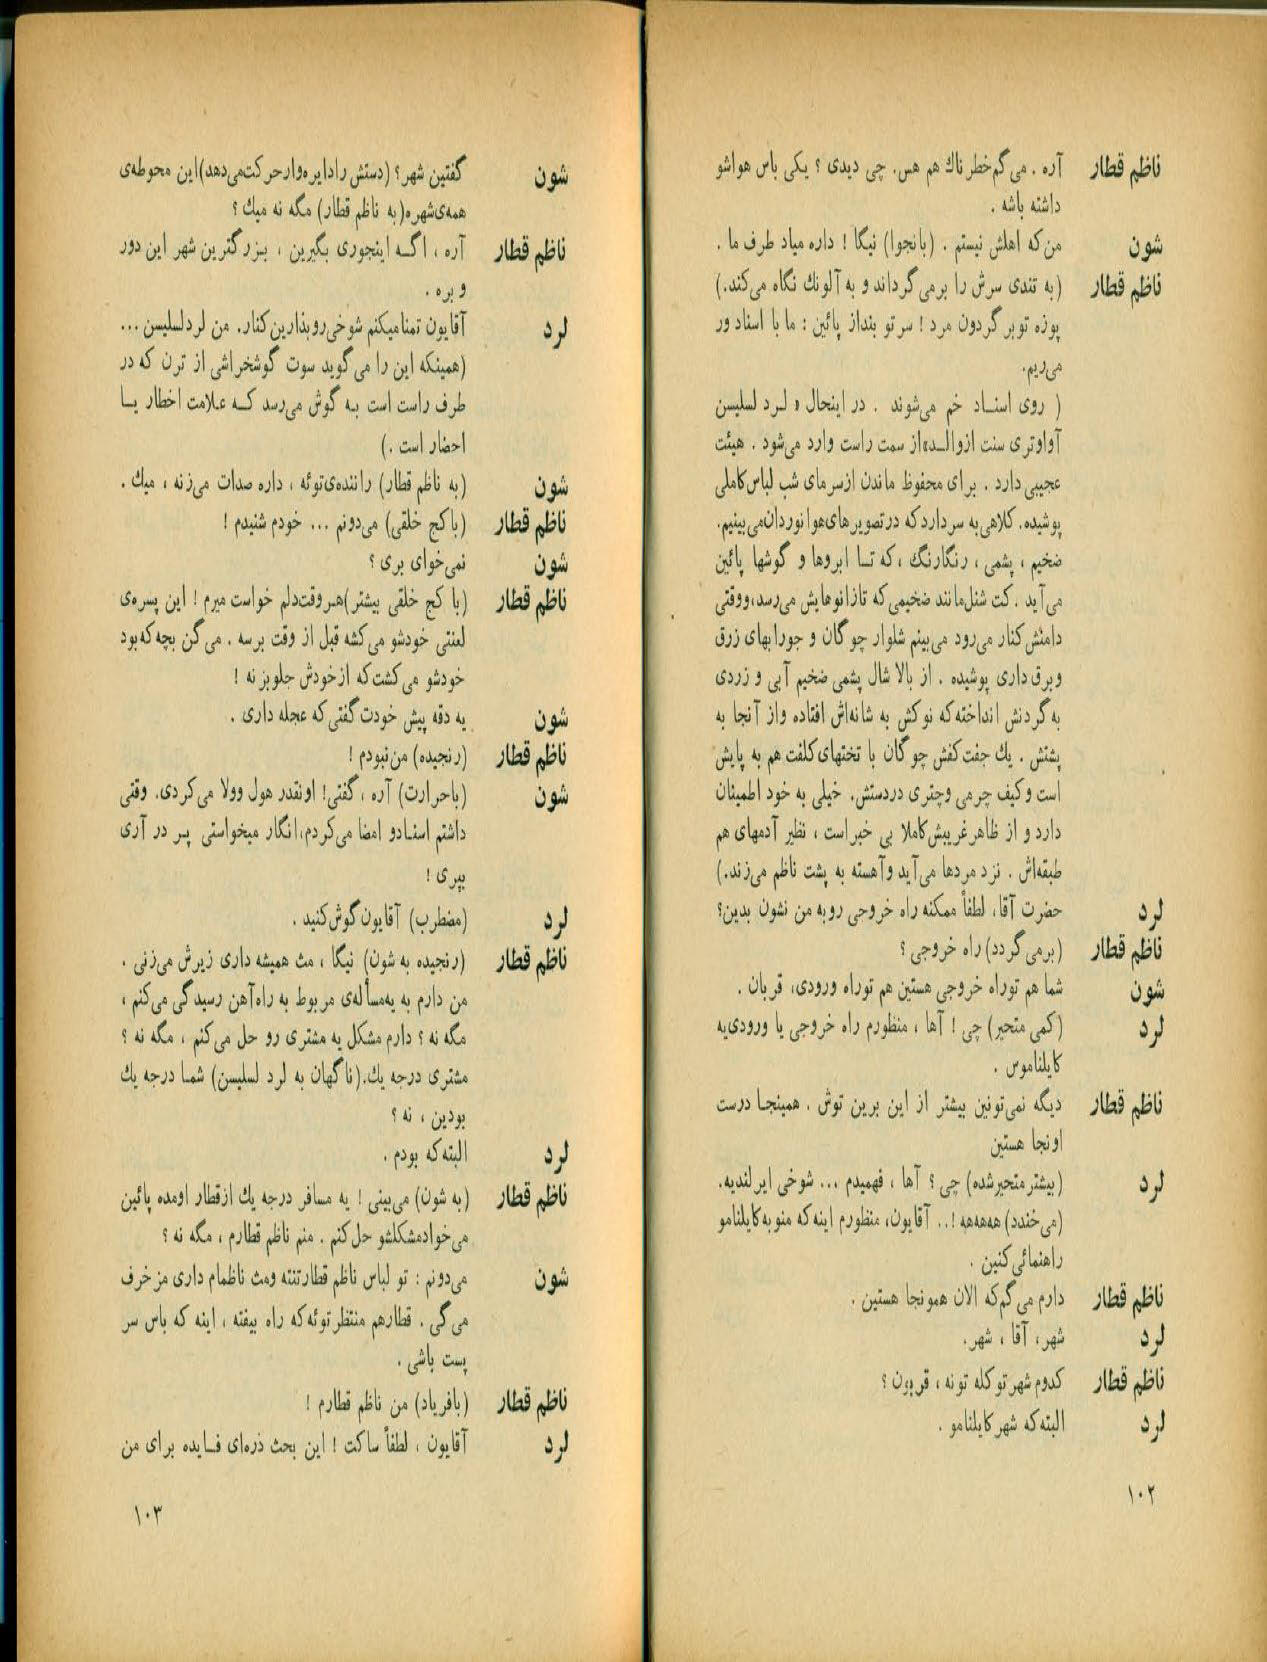 ناظم قطار آره . می‌گم خطر ناك هم هس. چی دیدی ؟ یکی باس هواشو
داشته باشه .
شون من که اهلش نیستم . (بانجوا) نیگا ! داره میاد طرف ما .
ناظم قطار (به تندی سرش را برمی‌گرداند و به آلونك نگاه می‌کند.)
پوزه تو بر گردون مرد ! سر تو بنداز پائین : ما با اسناد ور
می‌ریم.
( روی اسناد خم می‌شوند . در اینحال « لرد لسلیسن
آواوتری سنت ازوالد» از سمت راست وارد می‌شود . هیئت
عجیبی دارد . برای محفوظ ماندن ازسرمای شب لباس کاملی
پوشیده. کلاهی به سر دارد که در تصویر های هوا نوردان می‌بینیم.
ضخیم ، پشمی ، رنگارنگ ، که تا ابروها و گوشها پائین
می‌آید . کت شنل مانند ضخیمی که تازانوهایش می‌رسد، ووقتی
دامنش کنار می‌رود می‌بینم شلوار چوگان و جورابهای زرق
وبرق داری پوشیده . از بالا شال پشمی ضخیم آبی و زردی
به گردنش انداخته که نوکش به شانه‌اش افتاده واز آنجا به
پشتش . یك جفت کفش چوگان با تختهای کلفت هم به پایش
است و کیف چرمی وچتری دردستش. خیلی به خود اطمینان
دارد و از ظاهر غریبش کاملا بی خبر است ، نظیر آدمهای هم
طبقه‌اش . نزد مردها می‌آید و آهسته به پشت ناظم می‌زند.)
لرد حضرت آقا، لطفاً ممکنه راه خروجی رو به من نشون بدین؟
ناظم قطار (برمی‌گردد) راه خروجی ؟
شون شما هم توراه خروجی هستین هم توراه ورودی، قربان .
لرد (کمی متحیر) چی ! آها ، منظورم راه خروجی یا ورودی‌به
کایلناموس .
ناظم قطار دیگه نمی‌تونین بیشتر از این برین توش . همینجا درست
اونجا هستین
لرد (بیشتر متحیرشده) چی ؟ آها ، فهمیدم ... شوخی ایرلندیه.
(می‌خندد) هه‌هه‌هه !.. آقایون، منظورم اینه که منو به کایلنامو
راهنمائی کنین .
ناظم قطار دارم می‌گم که الان همونجا هستین .
لرد شهر، آقا ، شهر.
ناظم قطار کدوم شهر تو کله تونه ، قربون ؟
لرد البته که شهر کایلنامو .
۱۰۲
شون گفتین شهر؟ (دستش را دایره‌وار حرکت می‌دهد) این محوطه‌ی
همه‌ی شهره (به ناظم قطار) مگه نه میك ؟
ناظم قطار آره ، اگه اینجوری بگیرین ، بزرگترین شهر این دور
و بره .
لرد آقایون تمنا میکنم شوخی‌رو بذارین کنار. من لرد لسلیسن ...
(همینکه این را می‌گوید سوت گوشخراشی از ترن که در
طرف راست است به گوش می‌رسد که علامت اخطار یا
احضار است .)
شون (به ناظم قطار) راننده‌ی توئه ، داره صدات می‌زنه ، میك .
ناظم قطار (باکج خلقی) می‌دونم ... خودم شنیدم !
شون نمی‌خوای بری ؟
ناظم قطار (با کج خلقی بیشتر) هر وقت دلم خواست میرم ! این پسره‌ی
لعنتی خودشو می‌کشه قبل از وقت برسه . می‌گن بچه که بود
خودشو می‌کشت که از خودش جلو بزنه !
شون یه دقه پیش خودت گفتی که عجله داری .
ناظم قطار (رنجیده) من نبودم !
شون (باحرارت) آره ، گفتی! اونقدر هول وولا می‌کردی. وقتی
داشتم اسنادو امضا می‌کردم، انگار میخواستی پر در آری
بپری !
لرد (مضطرب) آقایون گوش کنید .
ناظم قطار (رنجیده به شون) نیگا ، مث همیشه داری زیرش می‌زنی .
من دارم به یه مسأله‌ی مربوط به راه‌آهن رسیدگی می‌کنم ،
مگه نه ؟ دارم مشکل یه مشتری رو حل می‌کنم ، مگه نه ؟
مشتری درجه یك. (ناگهان به لرد لسلیسن) شما درجه یك
بودین ، نه ؟
لرد البته که بودم .
ناظم قطار (به شون) می‌بینی ! یه مسافر درجه یك از قطار اومده پائین
می‌خواد مشکلشو حل کنم . منم ناظم قطارم ، مگه نه ؟
شون می‌دونم : تو لباس ناظم قطار تنته ومث ناظمام داری مزخرف
می‌گی . قطارهم منتظر توئه که راه بیفته ، اینه که باس سر
پست باشی .
ناظم قطار (بافریاد) من ناظم قطارم !
لرد آقایون ، لطفاً ساکت ! این بحث ذره‌ای فایده برای من
۱۰۳